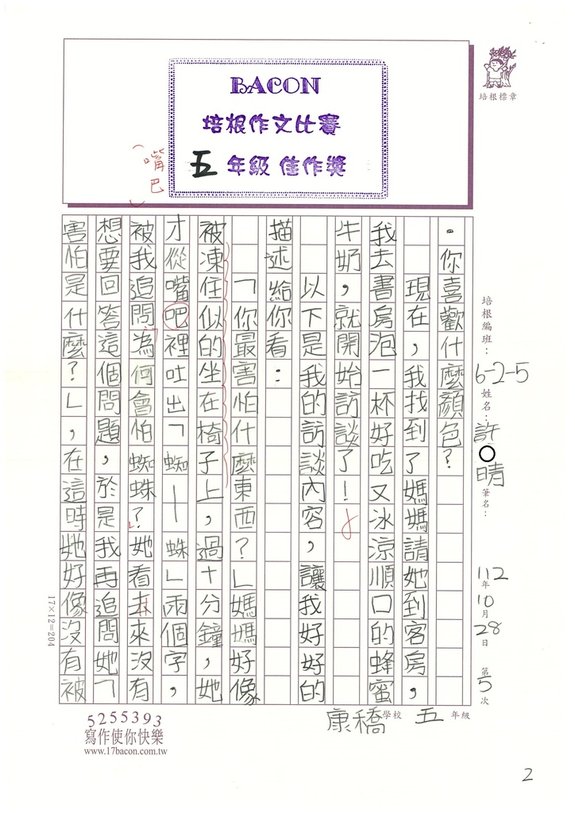 BACON
培根作文比賽
五年級 佳作獎
培根標章
（嘴巴）
培根編班：6-2-5
姓名：許○晴
筆名：
112年10月28日 第5次
康橋 學校 五 年級
。你喜歡什麼顏色？
現在，我找到了媽媽請她到客房，
我去書房泡一杯好吃又冰涼順口的蜂蜜
牛奶，就開始訪談了！
以下是我的訪談內容，讓我好好的
描述給你看：
「你最害怕什麼東西？」媽媽好像
被凍住似的坐在椅子上，過十分鐘，她
才從嘴吧裡吐出「蜘—蛛」兩個字，
被我追問為何會怕蜘蛛？她看本來沒有
想要回答這個問題，於是我再追問她「
害怕是什麼？」，在這時她好像沒有被
17×12=204
5255393
寫作使你快樂
www.17bacon.com.tw
2